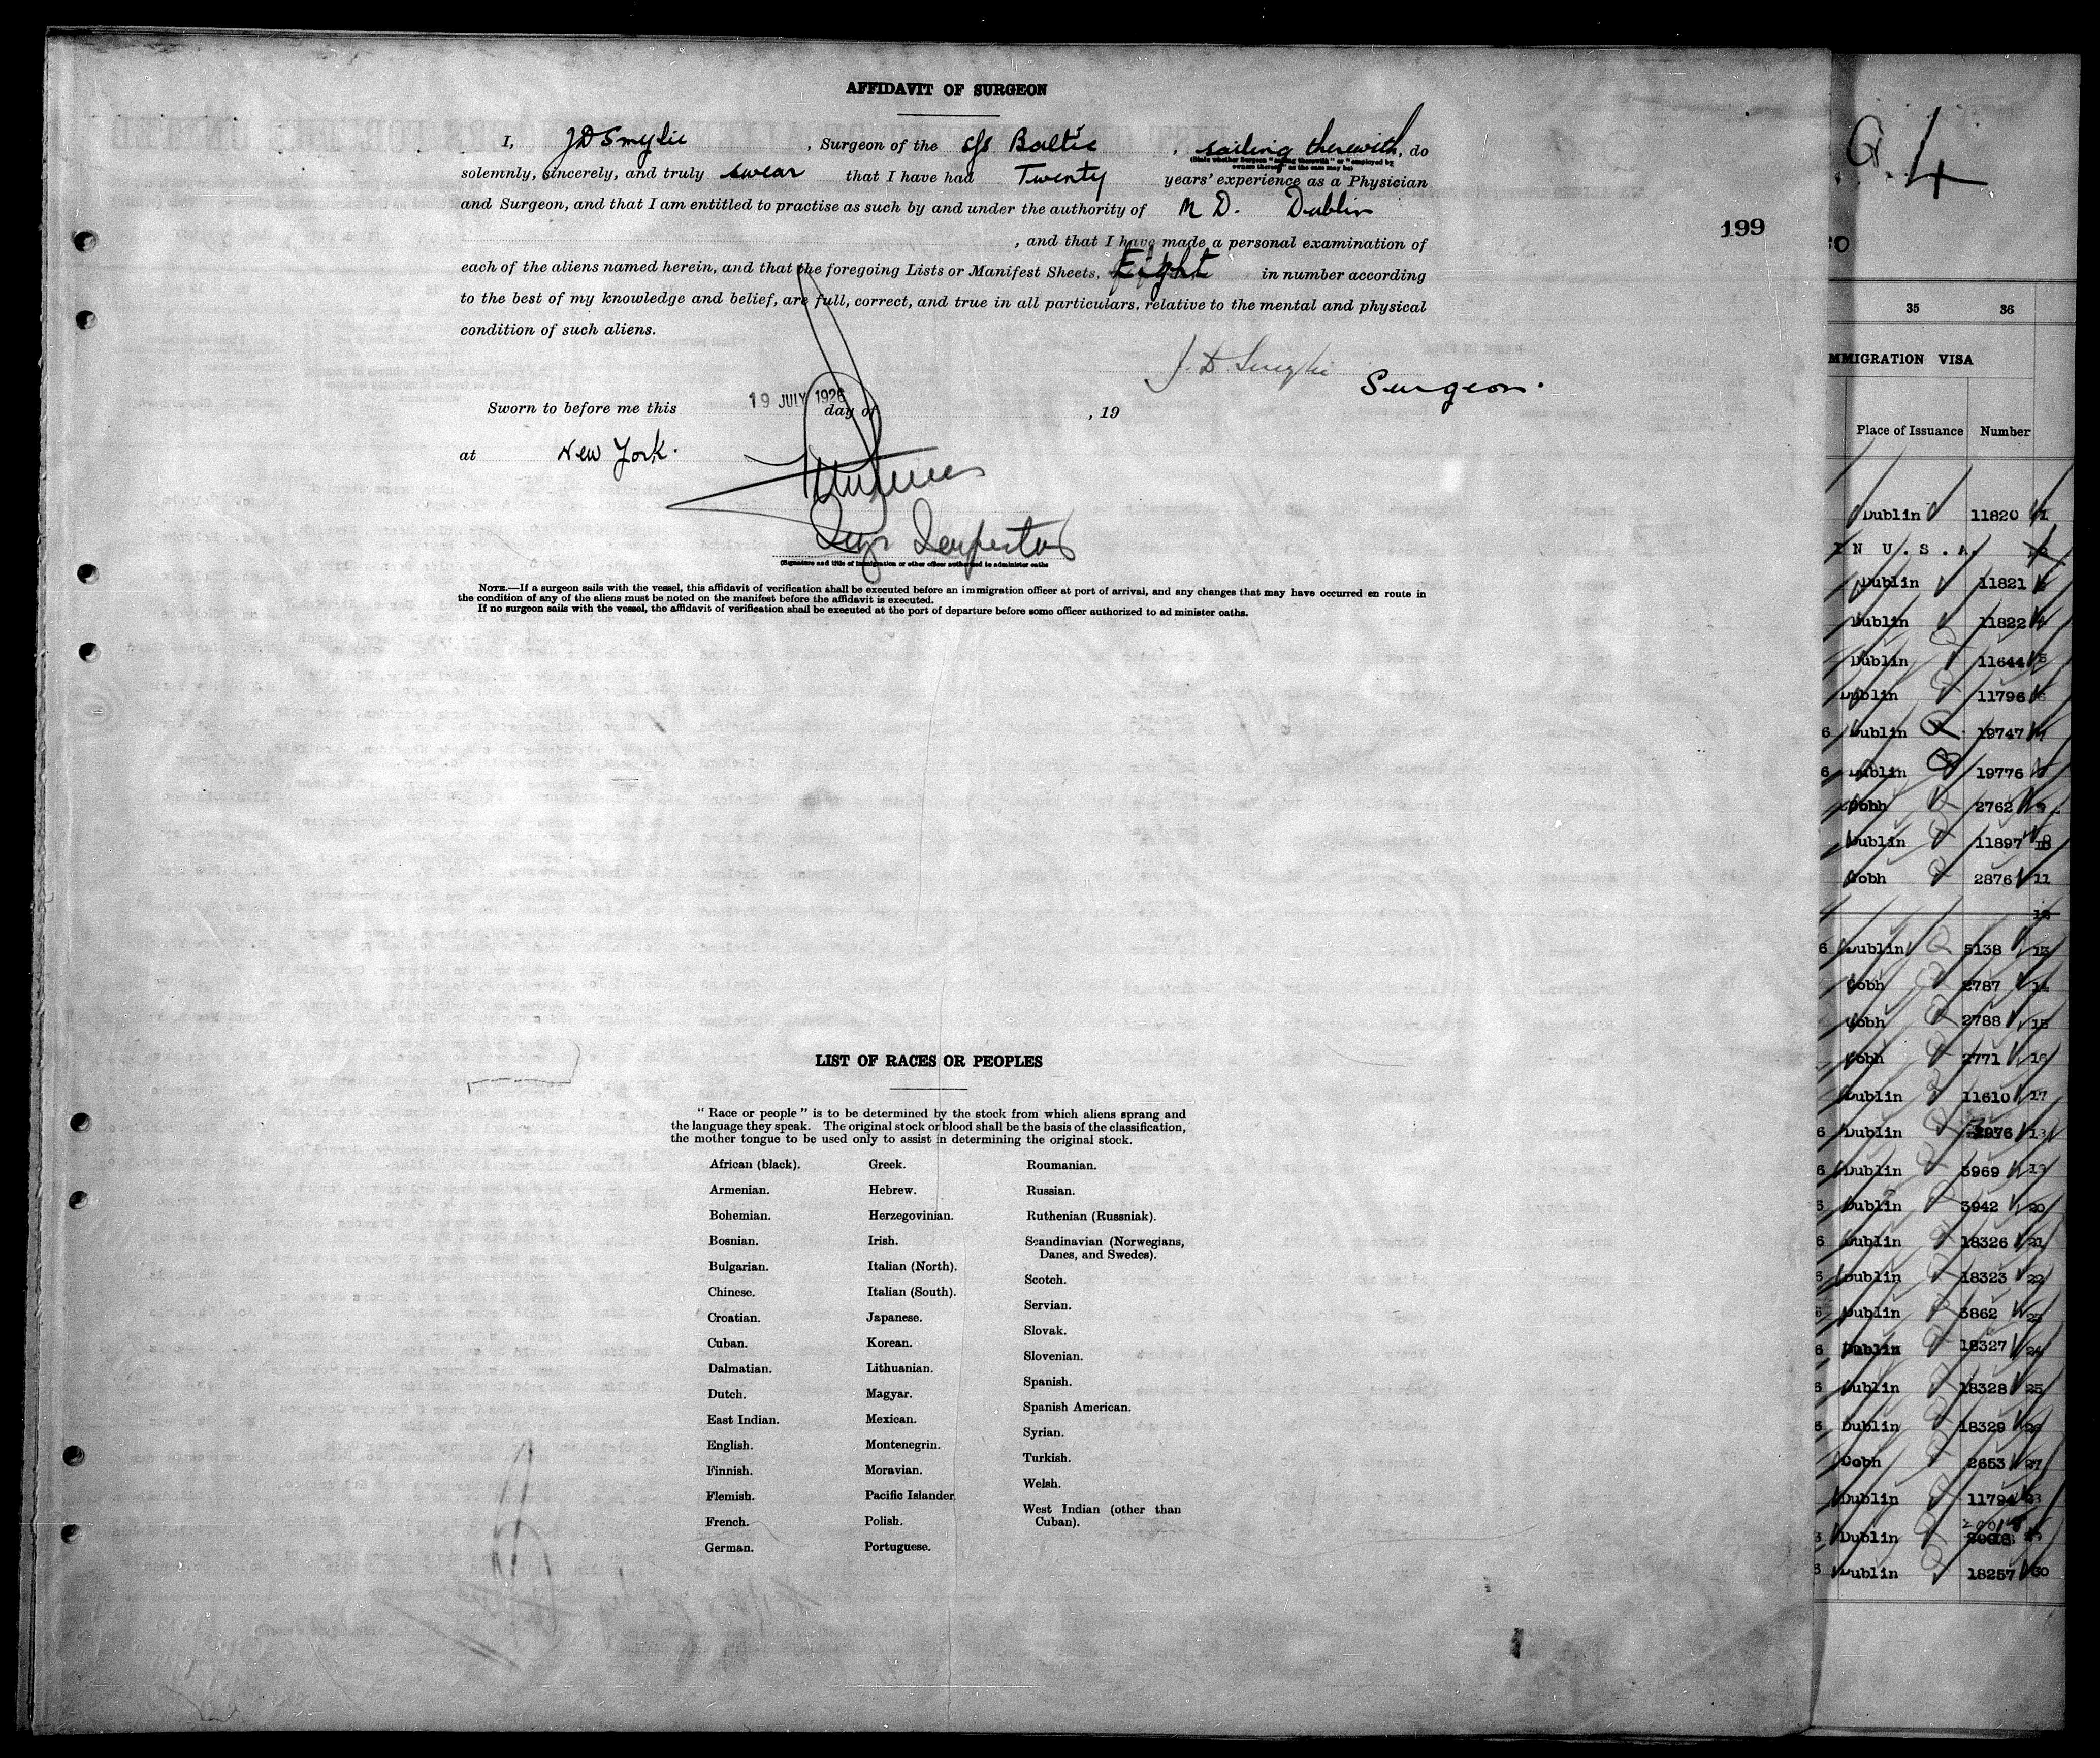 AFFIDAVIT OF SURGEON
I, J D Smylie, Surgeon of the s/s Baltic, sailing therewith, do
(State whether Surgeon "sailing therewith" or "employed by
owners thereof," as the case may be)
solemnly, sincerely, and truly swear that I have had Twenty years' experience as a Physician
and Surgeon, and that I am entitled to practise as such by and under the authority of M D. Dublin
, and that I have made a personal examination of
each of the aliens named herein, and that the foregoing Lists or Manifest Sheets, Eight in number according
to the best of my knowledge and belief, are full, correct, and true in all particulars, relative to the mental and physical
condition of such aliens.
J. D. Smylie
Surgeon.
Sworn to before me this 19 JULY 1926 day of , 19
at New York.
(Signature and title of immigration or other officer authorized to administer oaths
NOTE.—If a surgeon sails with the vessel, this affidavit of verification shall be executed before an immigration officer at port of arrival, and any changes that may have occurred en route in
the condition of any of the aliens must be noted on the manifest before the affidavit is executed.
If no surgeon sails with the vessel, the affidavit of verification shall be executed at the port of departure before some officer authorized to ad minister oaths.
LIST OF RACES OR PEOPLES
"Race or people" is to be determined by the stock from which aliens sprang and
the language they speak. The original stock or blood shall be the basis of the classification,
the mother tongue to be used only to assist in determining the original stock.
African (black).
Armenian.
Bohemian.
Bosnian.
Bulgarian.
Chinese.
Croatian.
Cuban.
Dalmatian.
Dutch.
East Indian.
English.
Finnish.
Flemish.
French.
German.
Greek.
Hebrew.
Herzegovinian.
Irish.
Italian (North).
Italian (South).
Japanese.
Korean.
Lithuanian.
Magyar.
Mexican.
Montenegrin.
Moravian.
Pacific Islander.
Polish.
Portuguese.
Roumanian.
Russian.
Ruthenian (Russniak).
Scandinavian (Norwegians,
Danes, and Swedes).
Scotch.
Servian.
Slovak.
Slovenian.
Spanish.
Spanish American.
Syrian.
Turkish.
Welsh.
West Indian (other than
Cuban).
199
4
35 36
MMIGRATION VISA
Place of Issuance Number
Dublin 11820 1
IN U.S.A.
Dublin 11821
Dublin 11822 4
Dublin 11644 5
Dublin 11796 6
6 Dublin 19747
6 Dublin 19776
Cobh 2762 9
Dublin 11897 10
Cobh 2876 11
12
6 Dublin 5138 13
Cobh 2787 14
Cobh 2788 15
Cobh 2771 16
Dublin 11610 17
6 Dublin
6 Dublin 3969 19
6 Dublin 3942 20
6 Dublin 18326 21
6 Dublin 18323 22
6 Dublin 3862 23
6 Dublin 18327 24
6 Dublin 18328 25
6 Dublin 18329 26
Cobh 2653 27
Dublin 11794 28
Dublin
6 Dublin 18257 30